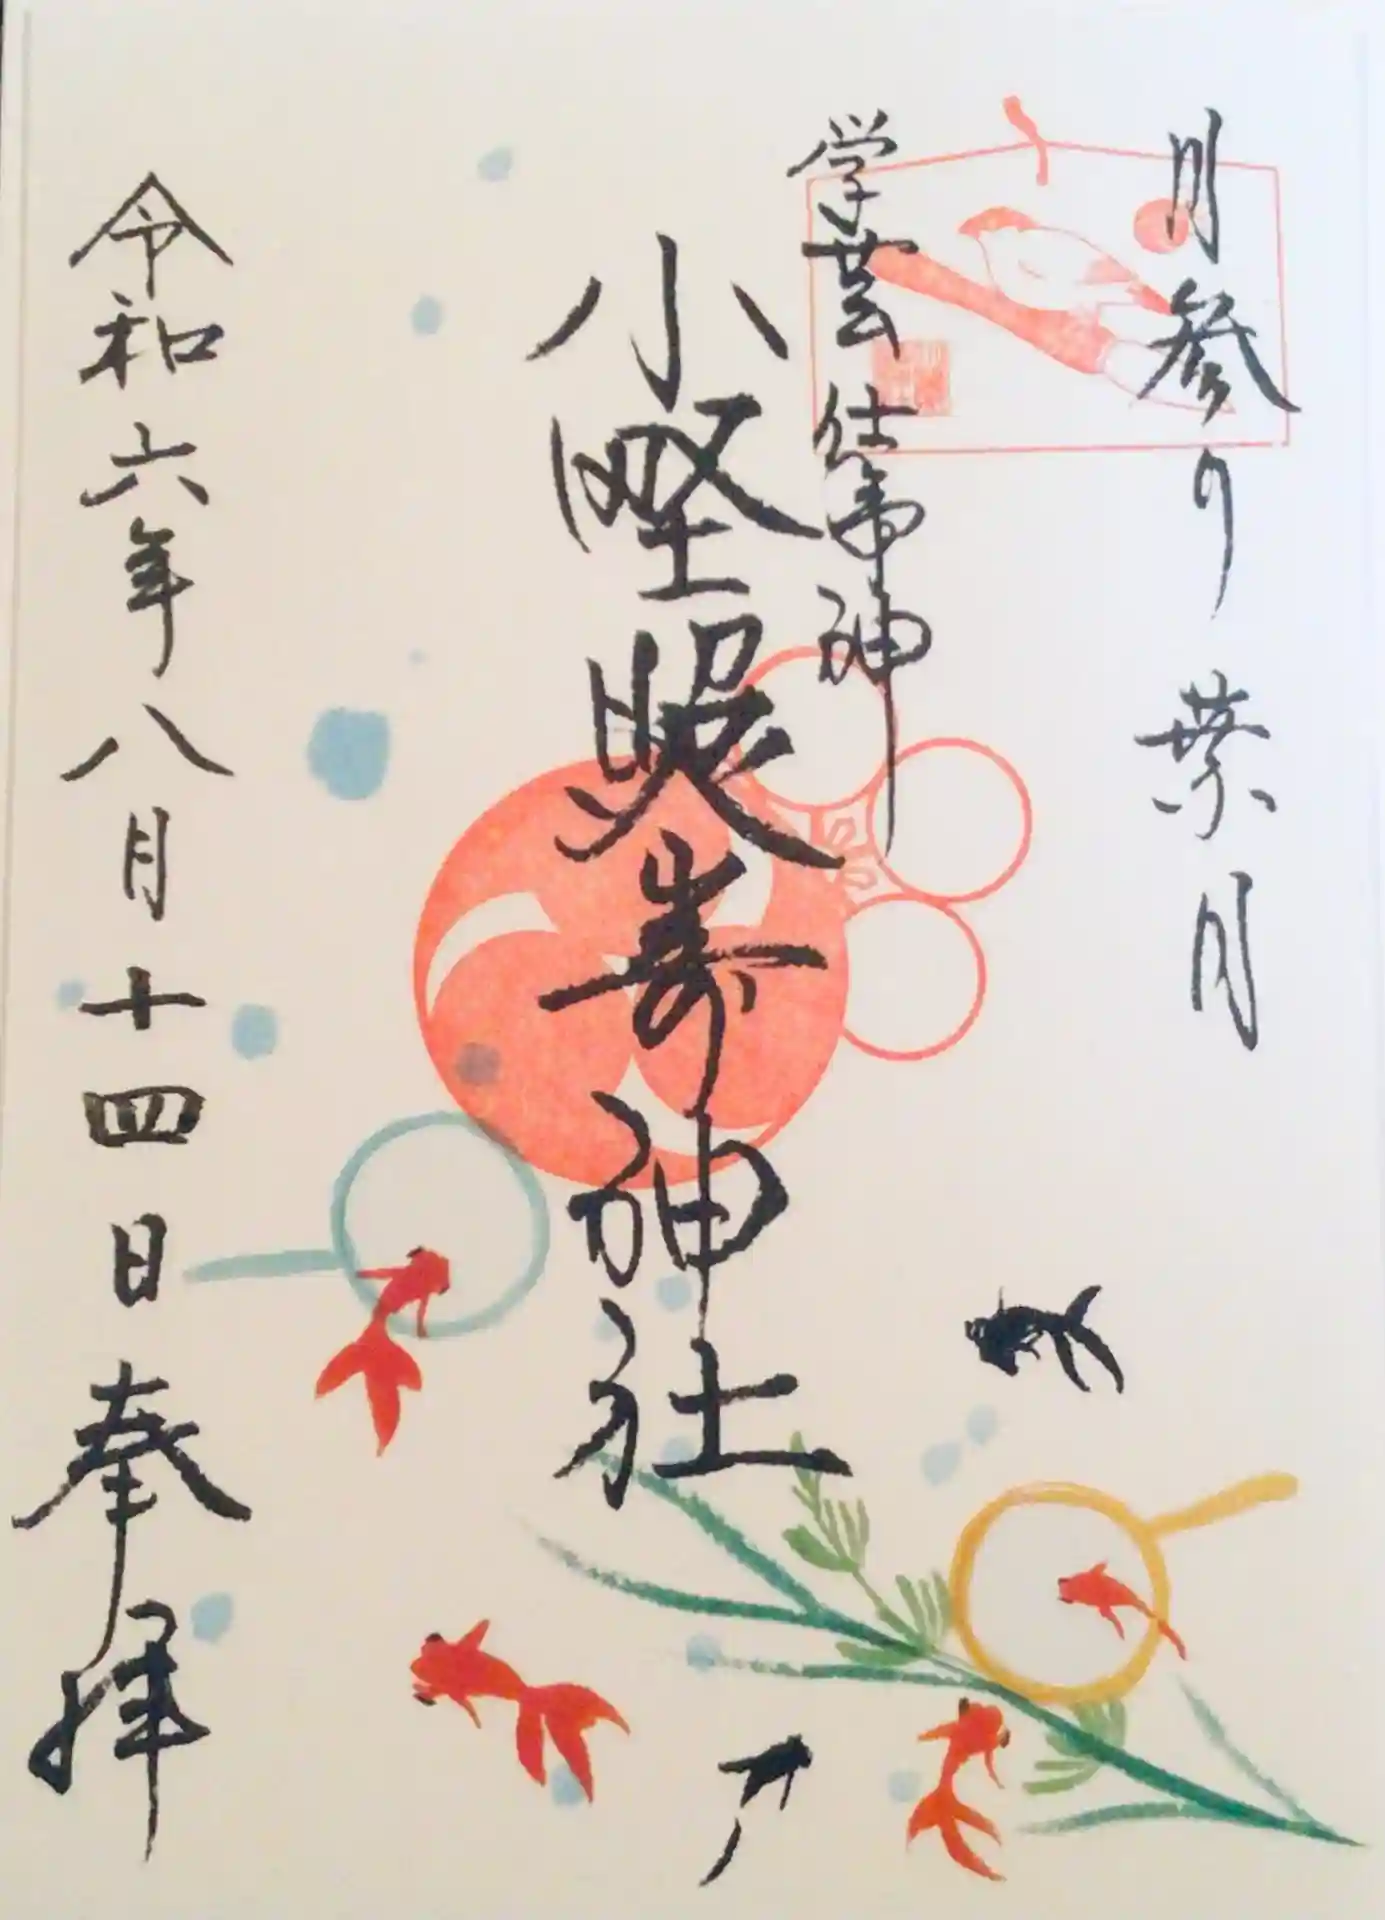 月参り 葉月
学芸 仕事神
小野照崎神社
令和六年八月十四日奉拝